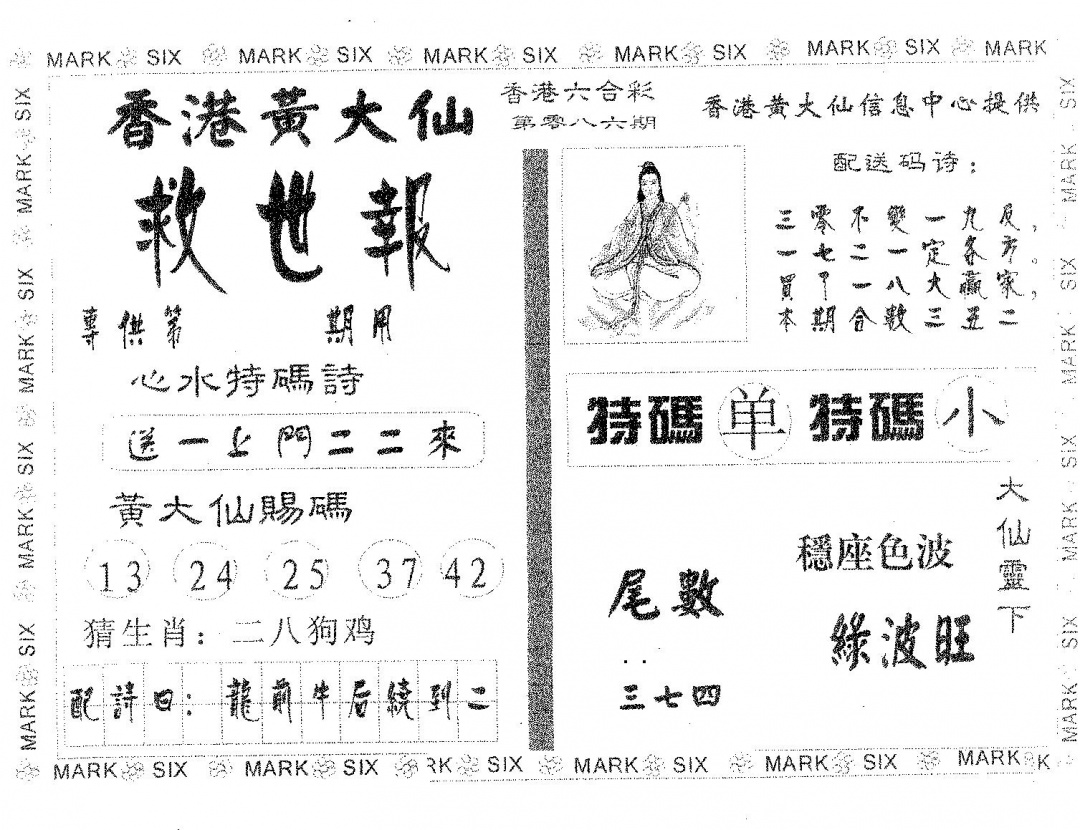 MARK SIX MARK SIX MARK SIX MARK SIX MARK SIX MARK
香港黃大仙
救世報
專供第 期用
心水特碼詩
送一上門二二來
黃大仙賜碼
13 24 25 37 42
猜生肖：二八狗鸡
配詩曰：龍前牛后繞到二
香港六合彩
第零八六期
香港黄大仙信息中心提供
配送码诗：
三零不變一九反，
一七二一定各方。
買了一八大贏家，
本期合数三五二
特碼单 特碼小
大仙靈下
穩座色波
綠波旺
尾數
：
三七四
MARK SIX MARK SIX MARK SIX MARK SIX
MARK SIX MARK SIX MARK SIX MARK SIX
MARK SIX MARK SIX RK SIX MARK SIX MARK SIX MARK K